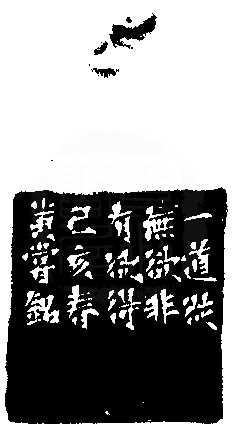 一道從
無欲非
有欲得
己亥春
黃嘗銘